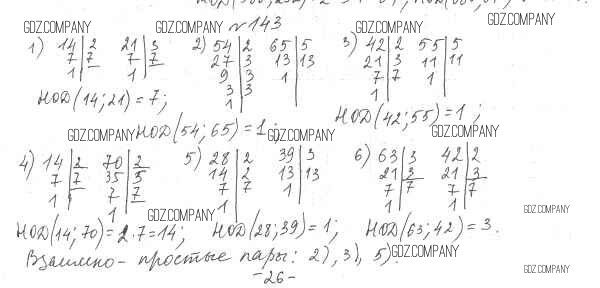 №143
GDZ.COMPANY GDZ.COMPANY GDZ.COMPANY GDZ.COMPANY
1) 14|2 21|3 2) 54|2 65|5 3) 42|2 55|5
7|7 7|7 27|3 13|13 21|3 11|11
1| 1| 9|3 1| 7|7 1|
3|3 1|
1|
НОД(14;21)=7;
НОД(54;65)=1; НОД(42;55)=1;
GDZ.COMPANY GDZ.COMPANY GDZ.COMPANY
4) 14|2 70|2 5) 28|2 39|3 6) 63|3 42|2
7|7 35|5 14|2 13|13 21|3 21|3
1| 7|7 7|7 1| 7|7 7|7
1| 1| 1| 1|
GDZ.COMPANY GDZ.COMPANY
НОД(14;70)=2·7=14; НОД(28;39)=1; НОД(63;42)=3.
Взаимно-простые пары: 2), 3), 5).
GDZ.COMPANY
GDZ.COMPANY
-26-